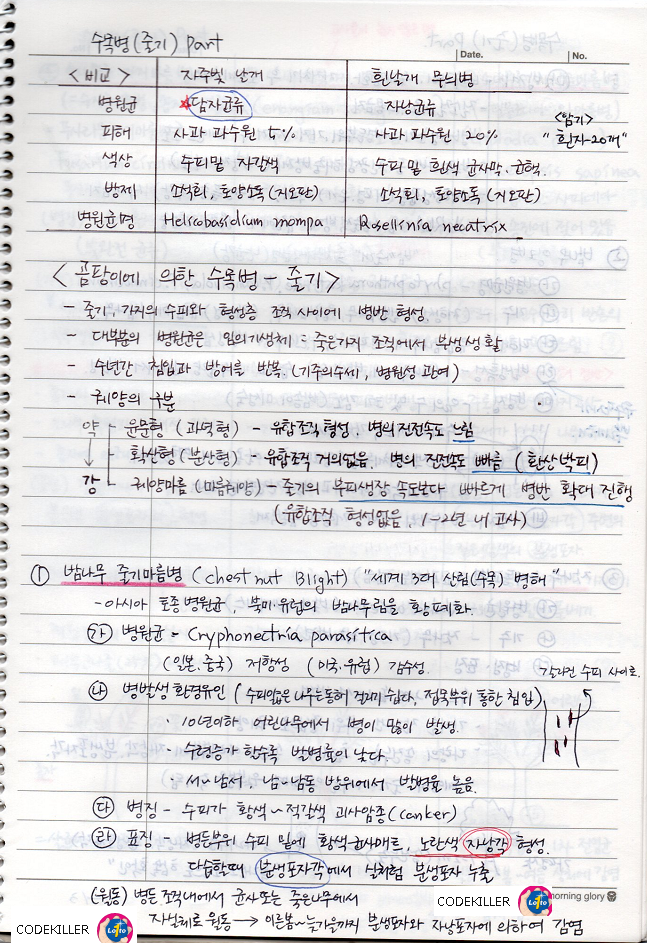 수목병(줄기) part
Date.
No.
<비교> 자주빛 날개 흰날개 무늬병
병원균 ★담자균류 자낭균류 <암기>
피해 사과 과수원 5% 사과 과수원 20% "흰자-20개"
색상 수피밑 자갈색 수피 밑 흰색 균사막, 균핵.
방제 소석회, 토양소독(지오판) 소석회, 토양소독(지오판)
병원균명 Helicobasidium mompa Rosellinia necatrix
<곰팡이에 의한 수목병 - 줄기>
- 줄기, 가지의 수피와 형성층 조직 사이에 병반 형성.
- 대부분의 병원균은 임의기생체 = 죽은가지 조직에서 부생생활
- 수년간 침입과 방어를 반복(기주의수세, 병원성 관여)
- 궤양의 구분
약 - 윤문형 (과녁형) - 유합조직 형성. 병의 진전속도 느림
확산형(분산형) - 유합조직 거의없음. 병의 진전속도 빠름 (환상박피)
강 궤양마름 (마름궤양) - 줄기의 부피생장 속도보다 빠르게 병반 확대 진행
(유합조직 형성없음, 1~2년 내 고사)
① 밤나무 줄기마름병 (chestnut Blight) "세계 3대 산림(수목) 병해"
- 아시아 토종 병원균, 북미·유럽의 밤나무림을 황폐화.
㉮ 병원균 - Cryphonectria parasitica
(일본.중국) 저항성 (미국.유럽) 감수성.
갈라진 수피 사이로.
㉯ 병발생 환경유인 (수피얇은나무는동해 걸리기 쉽다, 접목부위 통한 침입)
· 10년이하 어린나무에서 병이 많이 발생.
· 수령증가 할수록 발병률이 낮다.
· 서~남서, 남~남동 방위에서 발병률 높음.
㉰ 병징 - 수피가 황색~적갈색 괴사암종(canker)
㉱ 표징 병든부위 수피 밑에 황색균사매트, 노란색 자낭각 형성.
다습할때 분생포자각에서 실처럼 분생포자 누출
(월동) 병든 조직내에서 균사 또는 죽은나무에서
자실체로 월동 → 이른봄~늦가을까지 분생포자와 자낭포자에 의하여 감염
morning glory
CODEKILLER
Lotto
CODEKILLER
Lotto